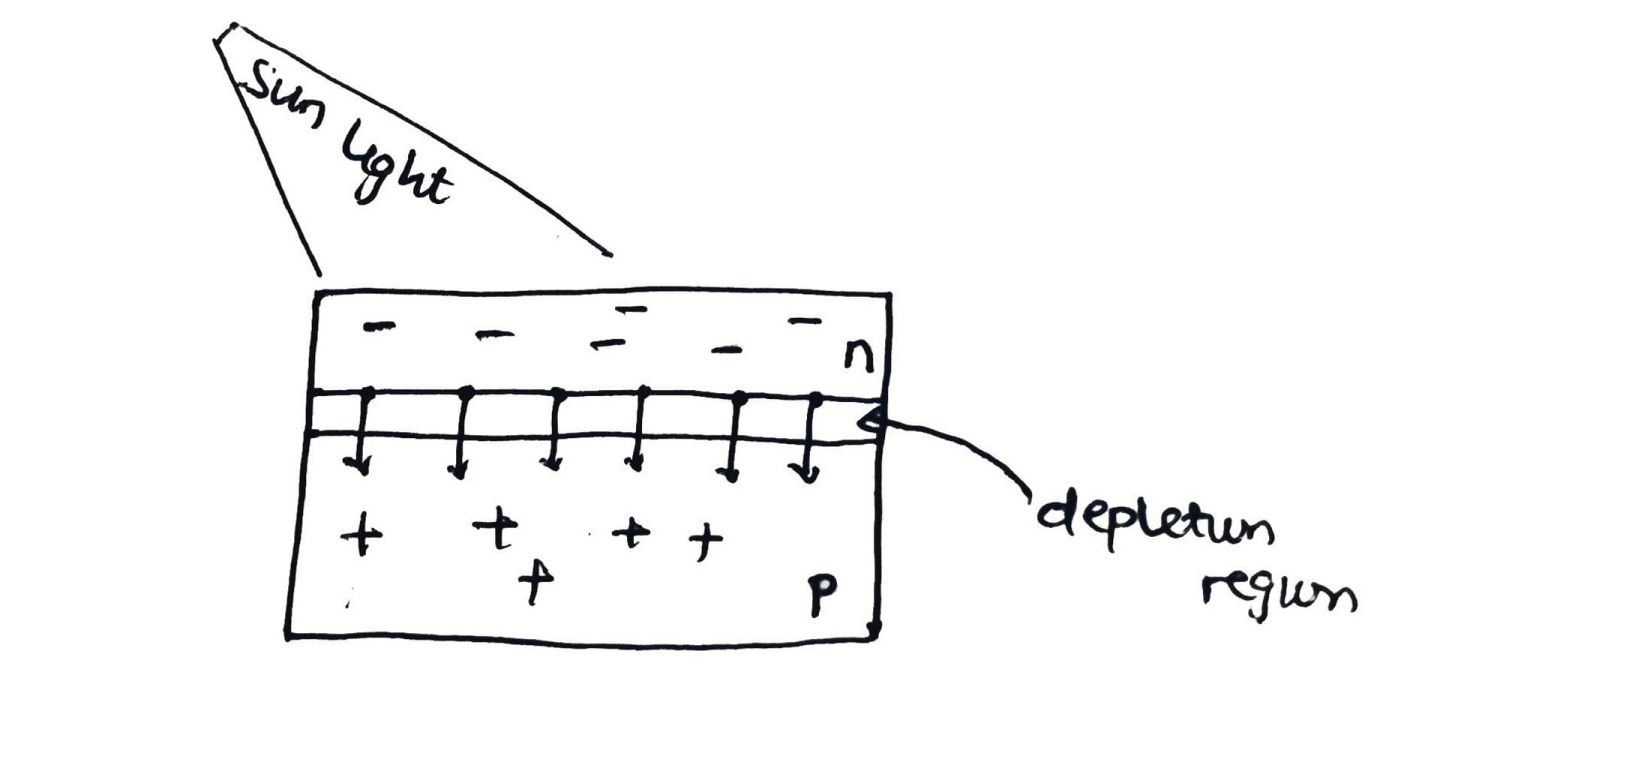 Sun light
- - - - - -
n
+ + + +
+
p
depletion
region